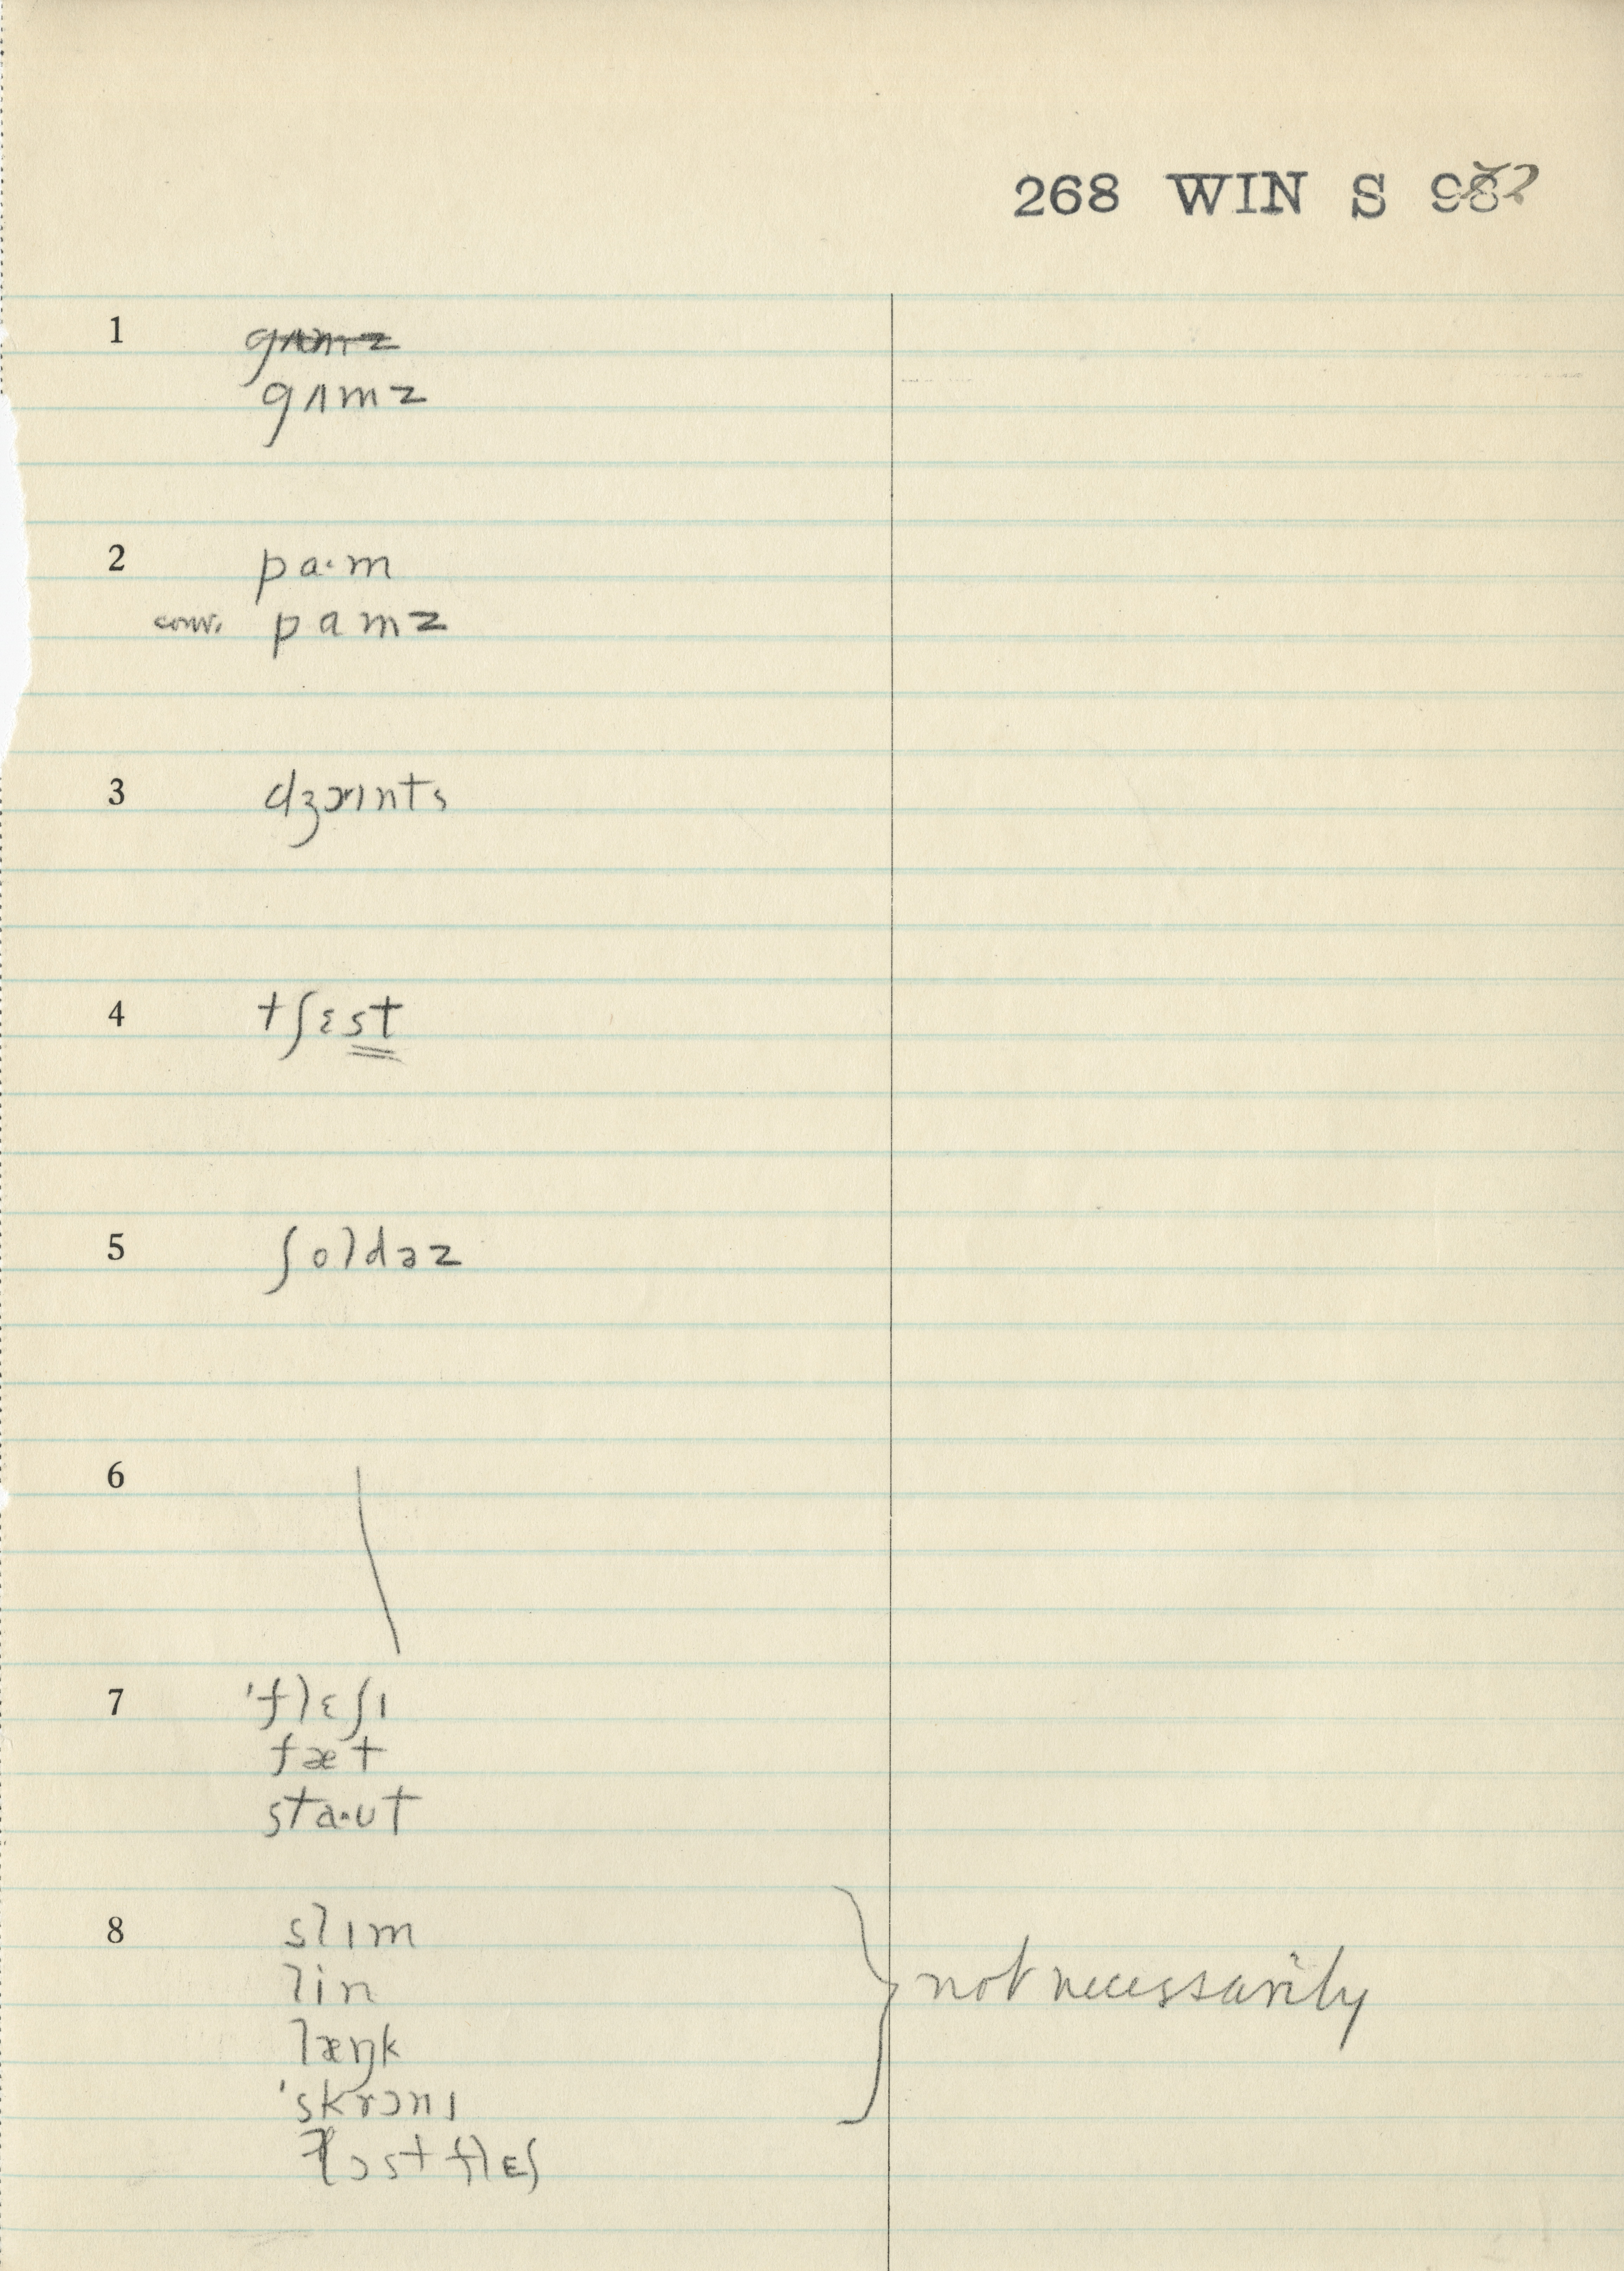 268 WIN S 98?
1 gʌmz
gʌmz
2 pa·m
conv. pamz
3 dʒɔɪnts
4 tʃɛst
5 ʃoldəz
6
7 'flɛʃɪ
fæt
sta·ʊt
8 slɪm
lin
læŋk
'skrɔnɪ
lɔst flɛʃ
not necessarily